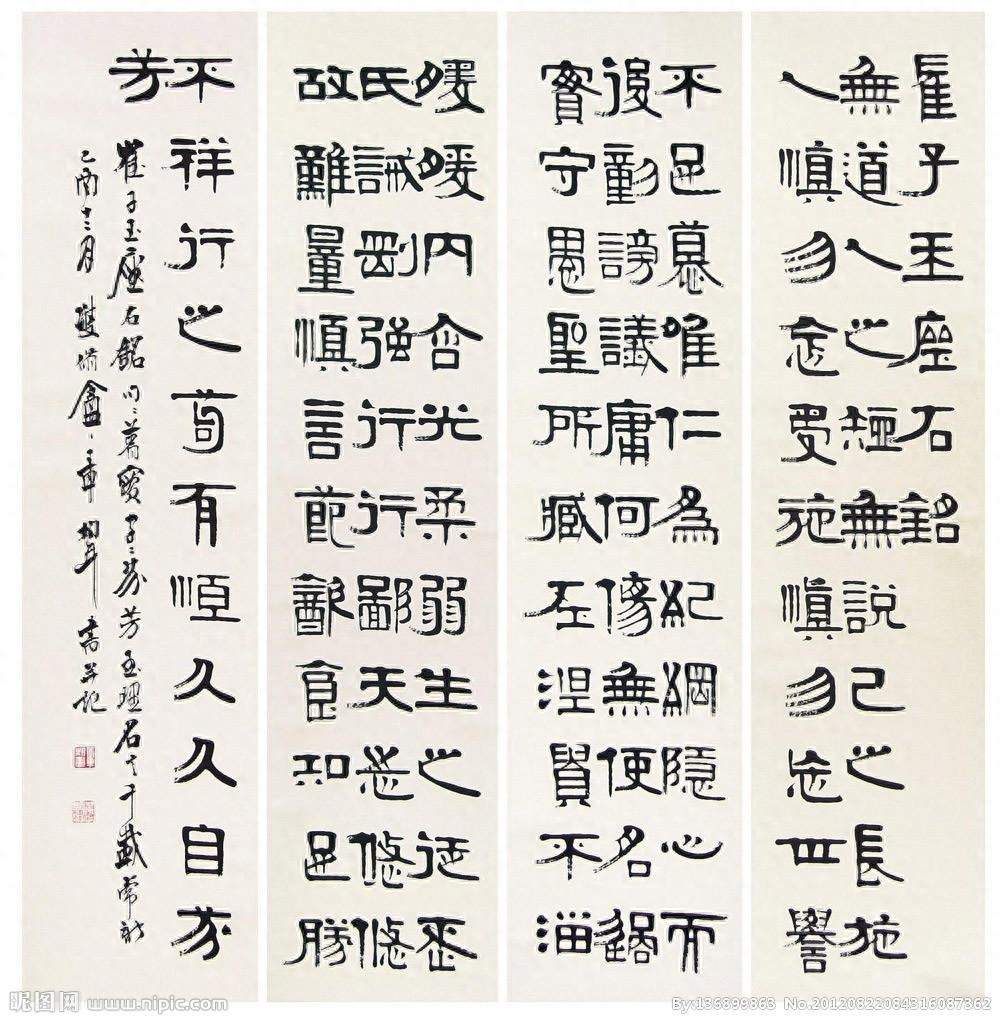 崔子玉座右銘
無道人之短無說己之長施
人慎勿念受施慎勿忘世譽
不足慕唯仁為紀綱隱心而
後動謗議庸何傷無使名過
實守愚聖所臧在涅貴不淄
曖曖内含光柔弱生之徒老
氏誡剛强行行鄙夫志悠悠
故難量慎言節飲食知足勝
不祥行之苟有恆久久自芬
芳
崔子玉座右銘
乙酉十二月
昵图网 www.nipic.com
By:136899863 No.20120822084316087362